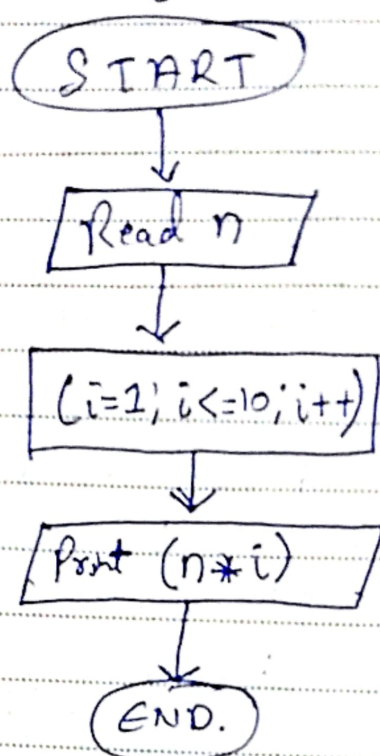 START
Read n
(i=1; i<=10; i++)
Print (n*i)
END.